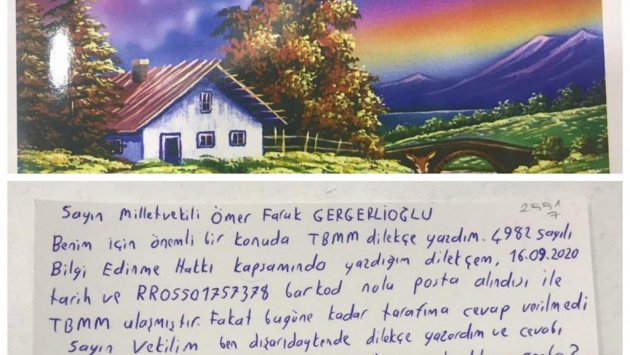 Sayın Milletvekili Ömer Faruk GERGERLİOĞLU
2551
7
Benim için önemli bir konuda TBMM dilekçe yazdım. 4982 sayılı
Bilgi Edinme Hakkı kapsamında yazdığım dilekçem, 16.09.2020
tarih ve RR05501757378 barkod nolu posta alındısı ile
TBMM ulaşmıştır. Fakat bugüne kadar tarafıma cevap verilmedi
Sayın Vekilim ben dışarıdayken de dilekçe yazardım ve cevabı